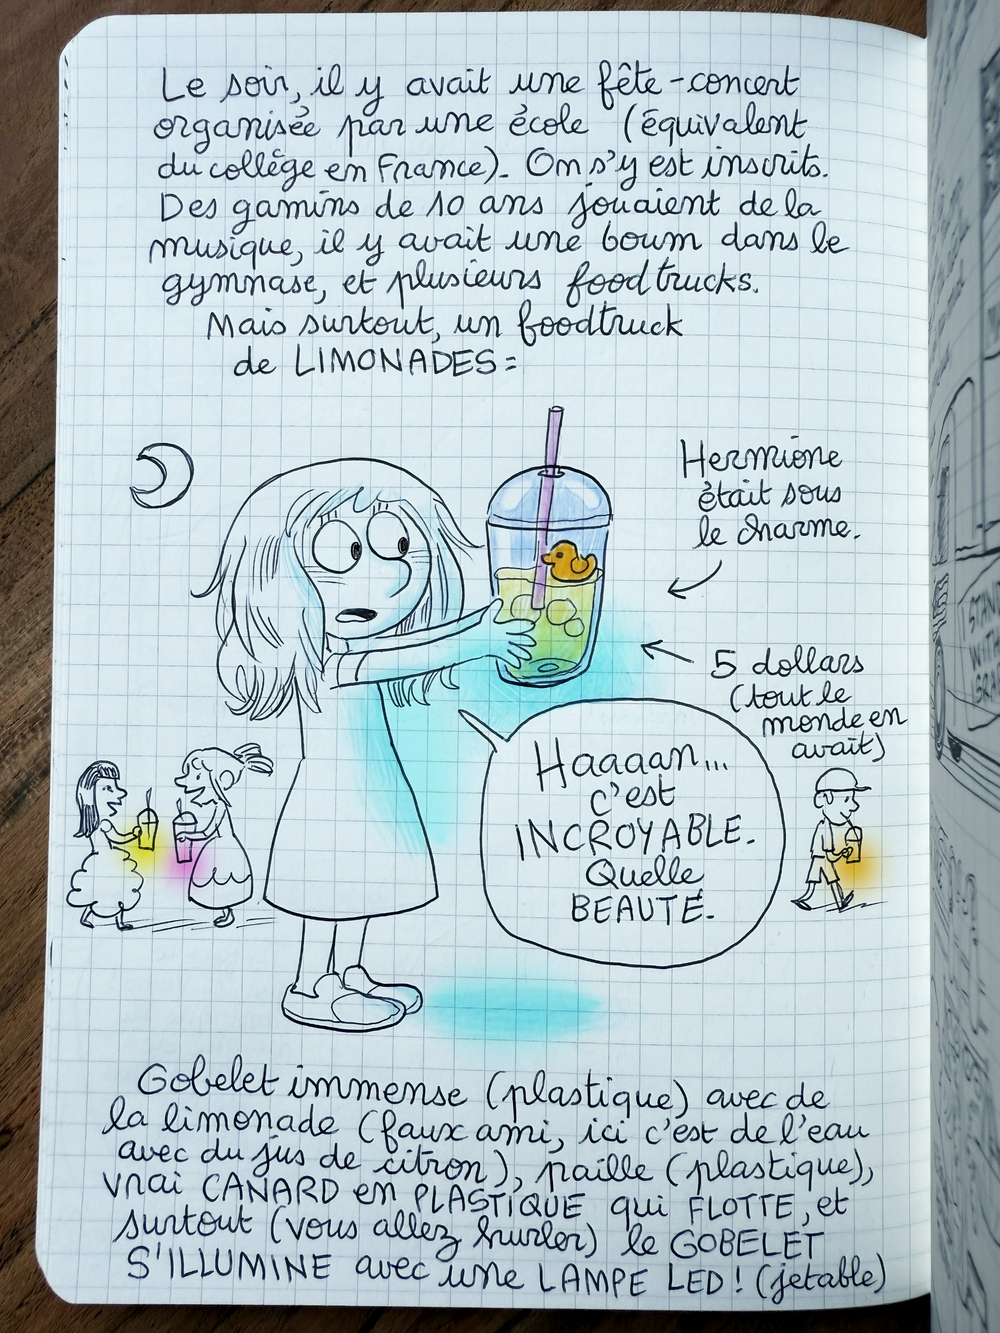 Le soir, il y avait une fête-concert
organisée par une école (équivalent
du collège en France). On s'y est inscrits.
Des gamins de 10 ans jouaient de la
musique, il y avait une boum dans le
gymnase, et plusieurs foodtrucks.
Mais surtout, un foodtruck
de LIMONADES =
Hermione
était sous
le charme.
5 dollars
(tout le
monde en
avait)
Haaaan...
c'est
INCROYABLE.
Quelle
BEAUTÉ.
Gobelet immense (plastique) avec de
la limonade (faux ami, ici c'est de l'eau
avec du jus de citron), paille (plastique),
vrai CANARD en PLASTIQUE qui FLOTTE, et
surtout (vous allez hurler) le GOBELET
S'ILLUMINE avec une LAMPE LED ! (jetable)